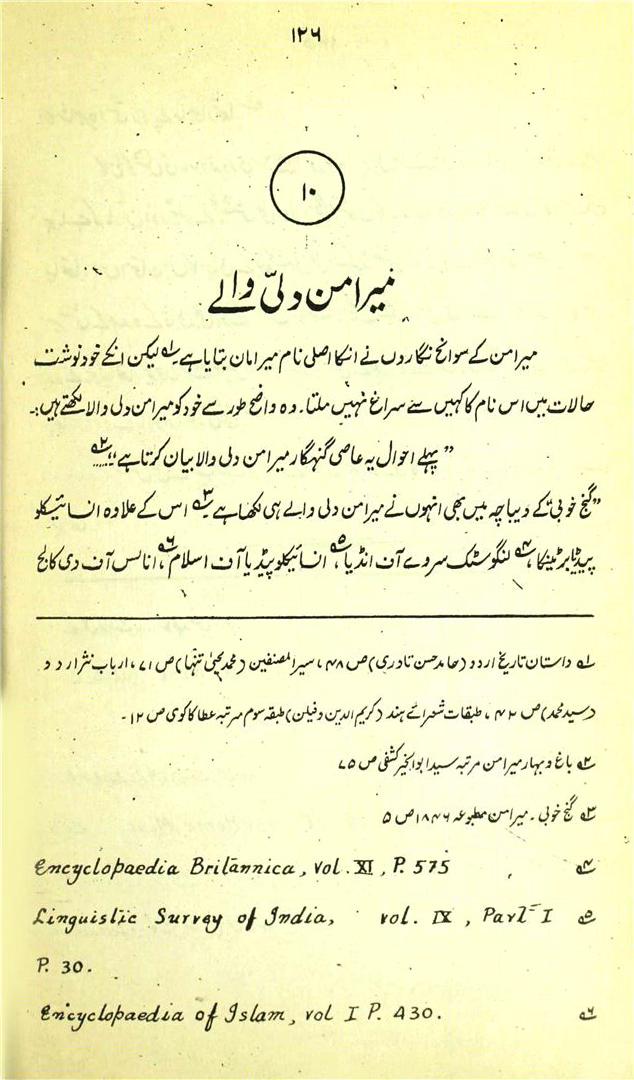 ۱۲۶
۱۰
میرامن دلیّ والے
میرامن کے سوانح نگاروں نے انکا اصلی نام میرامان بتایا ہے۔۱؎ لیکن انکے خود نوشت
حالات میں اس نام کا کہیں سے سراغ نہیں ملتا۔ وہ واضح طور سے خود کو میرامن دلی والا لکھتے ہیں:۔
”پہلے احوال یہ عاصی گنہگار میرامن دلی والا بیان کرتا ہے“۲؎
”گنج خوبی“ کے دیباچہ میں بھی انہوں نے میرامن دلی والے ہی لکھا ہے۔۳؎ اس کے علاوہ انسائیکلو
پیڈیا برٹینکا،۴؎ لنگوسٹک سروے آف انڈیا،۵؎ انسائیکلوپیڈیا آف اسلام،۶؎ انالس آف دی کالج
۱؎ داستان تاریخ اردو (حامد حسن قادری) ص ۴۸، سیرالمصنفین (محمد یحییٰ تنہا) ص ۷۱، ارباب نثر اردو
(سید محمد) ص ۴۲، طبقات شعرائے ہند (کریم الدین و فیلن) طبقہ سوم مرتبہ عطا کاکوی ص ۱۲۔
۲؎ باغ و بہار میرامن مرتبہ سید ابوالخیر کشفی ص ۷۵
۳؎ گنج خوبی۔ میرامن مطبوعہ ۱۸۴۶ ص ۵
۴؎ Encyclopaedia Britannica, Vol. XI, P. 575
۵؎ Linguistic Survey of India, vol. IX, Part I
P. 30.
۶؎ Encyclopaedia of Islam, vol I P. 430.